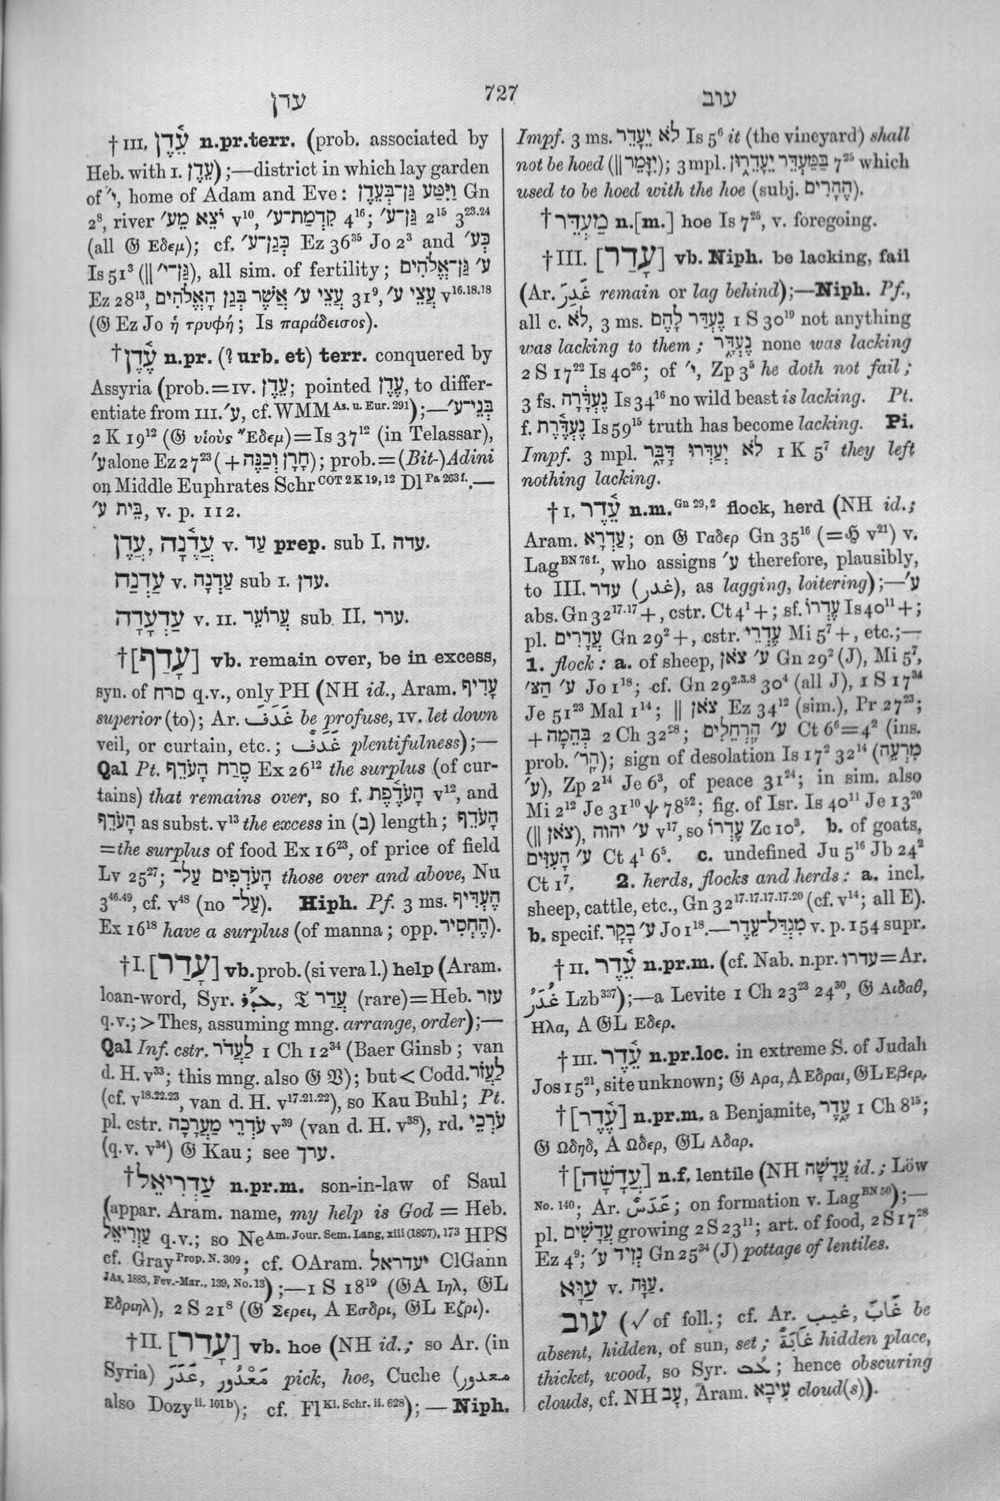 עדן
727
עוב
† III. עֵ֫דֶן n.pr.terr. (prob. associated by
Heb. with I. עֵדֶן);—district in which lay garden
of י׳, home of Adam and Eve: וַיִּטַּע גַּן־בְּעֵדֶן Gn
2⁸, river יֹצֵא מֵע׳ v¹⁰, קִדְמַת־ע׳ 4¹⁶; גַּן־ע׳ 2¹⁵ 3²³·²⁴
(all 𝔊 Εδεμ); cf. כְּגַן־ע׳ Ez 36³⁵ Jo 2³ and כְּע׳
Is 51³ (‖ גַּן־י׳), all sim. of fertility; ע׳ גַּן־אֱלֹהִים
Ez 28¹³, עֲצֵי ע׳ אֲשֶׁר בְּגַן הָאֱלֹהִים 31⁹, עֲצֵי ע׳ v¹⁶·¹⁸·¹⁸
(𝔊 Ez Jo ἡ τρυφή; Is παράδεισος).
† עֶ֫דֶן n.pr. (? urb. et) terr. conquered by
Assyria (prob.=IV. עֵדֶן; pointed עֶדֶן, to differ-
entiate from III. ע׳, cf. WMM As. u. Eur. 291);—בְּנֵי־ע׳
2 K 19¹² (𝔊 υἱοὺς Ἔδεμ)=Is 37¹² (in Telassar),
ע׳ alone Ez 27²³ (+ חָרָן וְכַנֵּה); prob.=(Bit-)Adini
on Middle Euphrates Schr COT 2 K 19, 12 Dl Pa 263 f..—
בֵּית ע׳, v. p. 112.
עֲדֶ֫נָה, עֲדֶן v. עַד prep. sub I. עדה.
עַדְנַח v. עַדְנָה sub I. עדן.
עַדְעָדָה v. II. עֲרוֹעֵר sub II. ערר.
† [עָדַף] vb. remain over, be in excess,
syn. of סרח q.v., only PH (NH id., Aram. עֲדִיף
superior (to); Ar. غَدَفَ be profuse, IV. let down
veil, or curtain, etc.; غَدَفٌ plentifulness);—
Qal Pt. סֶרַח הָעֹדֵף Ex 26¹² the surplus (of cur-
tains) that remains over, so f. הָעֹדֶ֫פֶת v¹², and
הָעֹדֵף as subst. v¹³ the excess in (ב) length; הָעֹדֵף
=the surplus of food Ex 16²³, of price of field
Lv 25²⁷; הָעֹדְפִים עַל־ those over and above, Nu
3⁴⁶·⁴⁹, cf. v⁴⁸ (no עַל־). Hiph. Pf. 3 ms. הֶעְדִּיף
Ex 16¹⁸ have a surplus (of manna; opp. הֶחְסִיר).
† I. [עָדַר] vb. prob. (si vera l.) help (Aram.
loan-word, Syr. ܥܕܪ, 𝔗 עֲדַר (rare)=Heb. עזר
q.v.; > Thes, assuming mng. arrange, order);—
Qal Inf. cstr. לַעֲדֹר 1 Ch 12³⁴ (Baer Ginsb; van
d. H. v³³; this mng. also 𝔊 𝔙); but < Codd. לַעֲזֹר
(cf. v¹⁸·²²·²³, van d. H. v¹⁷·²¹·²²), so Kau Buhl; Pt.
pl. cstr. עֹדְרֵי מַעֲרָכָה v³⁹ (van d. H. v³⁸), rd. עֹרְכֵי
(q.v. v³⁴) 𝔊 Kau; see ערך.
† עַדְרִיאֵל n.pr.m. son-in-law of Saul
(appar. Aram. name, my help is God = Heb.
עַזְרִיאֵל q.v.; so Ne Am. Jour. Sem. Lang. xiii (1897), 173 HPS
cf. Gray Prop. N. 309; cf. OAram. עדריאל ClGann
JAs, 1883, Fev.-Mar., 139, No. 13);—1 S 18¹⁹ (𝔊A Ιηλ, 𝔊L
Εδριηλ), 2 S 21⁸ (𝔊 Σερει, A Εσδρι, 𝔊L Εζρι).
† II. [עָדַר] vb. hoe (NH id.; so Ar. (in
Syria) عَدَرَ, مَعْدُور pick, hoe, Cuche (معدور
also Dozy ii. 101 b); cf. Fl Kl. Schr. ii. 628);—Niph.
Impf. 3 ms. לֹא יֵעָדֵר Is 5⁶ it (the vineyard) shall
not be hoed (‖ יִזָּמֵר); 3 mpl. בַּמַּעְדֵּר יֵעָדֵרוּן 7²⁵ which
used to be hoed with the hoe (subj. הֶהָרִים).
† מַעְדֵּר n.[m.] hoe Is 7²⁵, v. foregoing.
† III. [עָדַר] vb. Niph. be lacking, fail
(Ar. غَدَرَ remain or lag behind);—Niph. Pf.,
all c. לֹא, 3 ms. נֶעְדַּר לָהֶם 1 S 30¹⁹ not anything
was lacking to them; נֶעְדָּר none was lacking
2 S 17²² Is 40²⁶; of י׳, Zp 3⁵ he doth not fail;
3 fs. נֶעְדָּרָה Is 34¹⁶ no wild beast is lacking. Pt.
f. נֶעְדֶּ֫רֶת Is 59¹⁵ truth has become lacking. Pi.
Impf. 3 mpl. לֹא יְעַדְּרוּ דָּבָר 1 K 5⁷ they left
nothing lacking.
† I. עֵ֫דֶר n.m. Gn 29, 2 flock, herd (NH id.;
Aram. עֲדְרָא; on 𝔊 Γαδερ Gn 35¹⁶ (=ℌ v²¹) v.
Lag BN 76 f., who assigns ע׳ therefore, plausibly,
to III. עדר (غدر), as lagging, loitering);—ע׳
abs. Gn 32¹⁷·¹⁷+, cstr. Ct 4¹+; sf. עֶדְרוֹ Is 40¹¹+;
pl. עֲדָרִים Gn 29²+, cstr. עֶדְרֵי Mi 5⁷+, etc.;—
1. flock: a. of sheep, ע׳ צֹאן Gn 29² (J), Mi 5⁷,
ע׳ הַצּ׳ Jo 1¹⁸; cf. Gn 29²·³·⁸ 30⁴ (all J), 1 S 17³⁴
Je 51²³ Mal 1¹⁴; ‖ צֹאן Ez 34¹² (sim.), Pr 27²³;
+ בְּהֵמָה 2 Ch 32²⁸; ע׳ הָרְחֵלִים Ct 6⁶=4² (ins.
prob. הָר׳); sign of desolation Is 17² 32¹⁴ (מִרְעֵה
ע׳), Zp 2¹⁴ Je 6³, of peace 31²⁴; in sim. also
Mi 2¹² Je 31¹⁰ ψ 78⁵²; fig. of Isr. Is 40¹¹ Je 13²⁰
(‖ צֹאן), ע׳ יהוה v¹⁷, so עֶדְרוֹ Zc 10³. b. of goats,
ע׳ הָעִזִּים Ct 4¹ 6⁵. c. undefined Ju 5¹⁶ Jb 24²
Ct 1⁷. 2. herds, flocks and herds: a. incl.
sheep, cattle, etc., Gn 32¹⁷·¹⁷·¹⁷·¹⁷·²⁰ (cf. v¹⁴; all E).
b. specif. ע׳ בָקָר Jo 1¹⁸.—מִגְדַּל־עֵדֶר v. p. 154 supr.
† II. עֵ֫דֶר n.pr.m. (cf. Nab. n.pr. עדרו=Ar.
غُدَرُ Lzb³³⁷);—a Levite 1 Ch 23²³ 24³⁰, 𝔊 Αιδαθ,
Ηλα, A 𝔊L Εδερ.
† III. עֵ֫דֶר n.pr.loc. in extreme S. of Judah
Jos 15²¹, site unknown; 𝔊 Αρα, A Εδραι, 𝔊L Εβερ.
† [עֶ֫דֶר] n.pr.m. a Benjamite, עָדֶר 1 Ch 8¹⁵;
𝔊 Ωδηδ, A Ωδερ, 𝔊L Αδαρ.
† [עֲדָשָׁה] n.f. lentile (NH עֲדָשָׁה id.; Löw
No. 140; Ar. عَدَسٌ; on formation v. Lag BN 50);—
pl. עֲדָשִׁים growing 2 S 23¹¹; art. of food, 2 S 17²⁸
Ez 4⁹; נְזִיד ע׳ Gn 25³⁴ (J) pottage of lentiles.
עַוָּא v. עַוָּה.
עוב (√ of foll.; cf. Ar. غَابَ, غيب be
absent, hidden, of sun, set; غَابَةٌ hidden place,
thicket, wood, so Syr. ܥܒܐ; hence obscuring
clouds, cf. NH עָב, Aram. עֵיבָא cloud(s)).